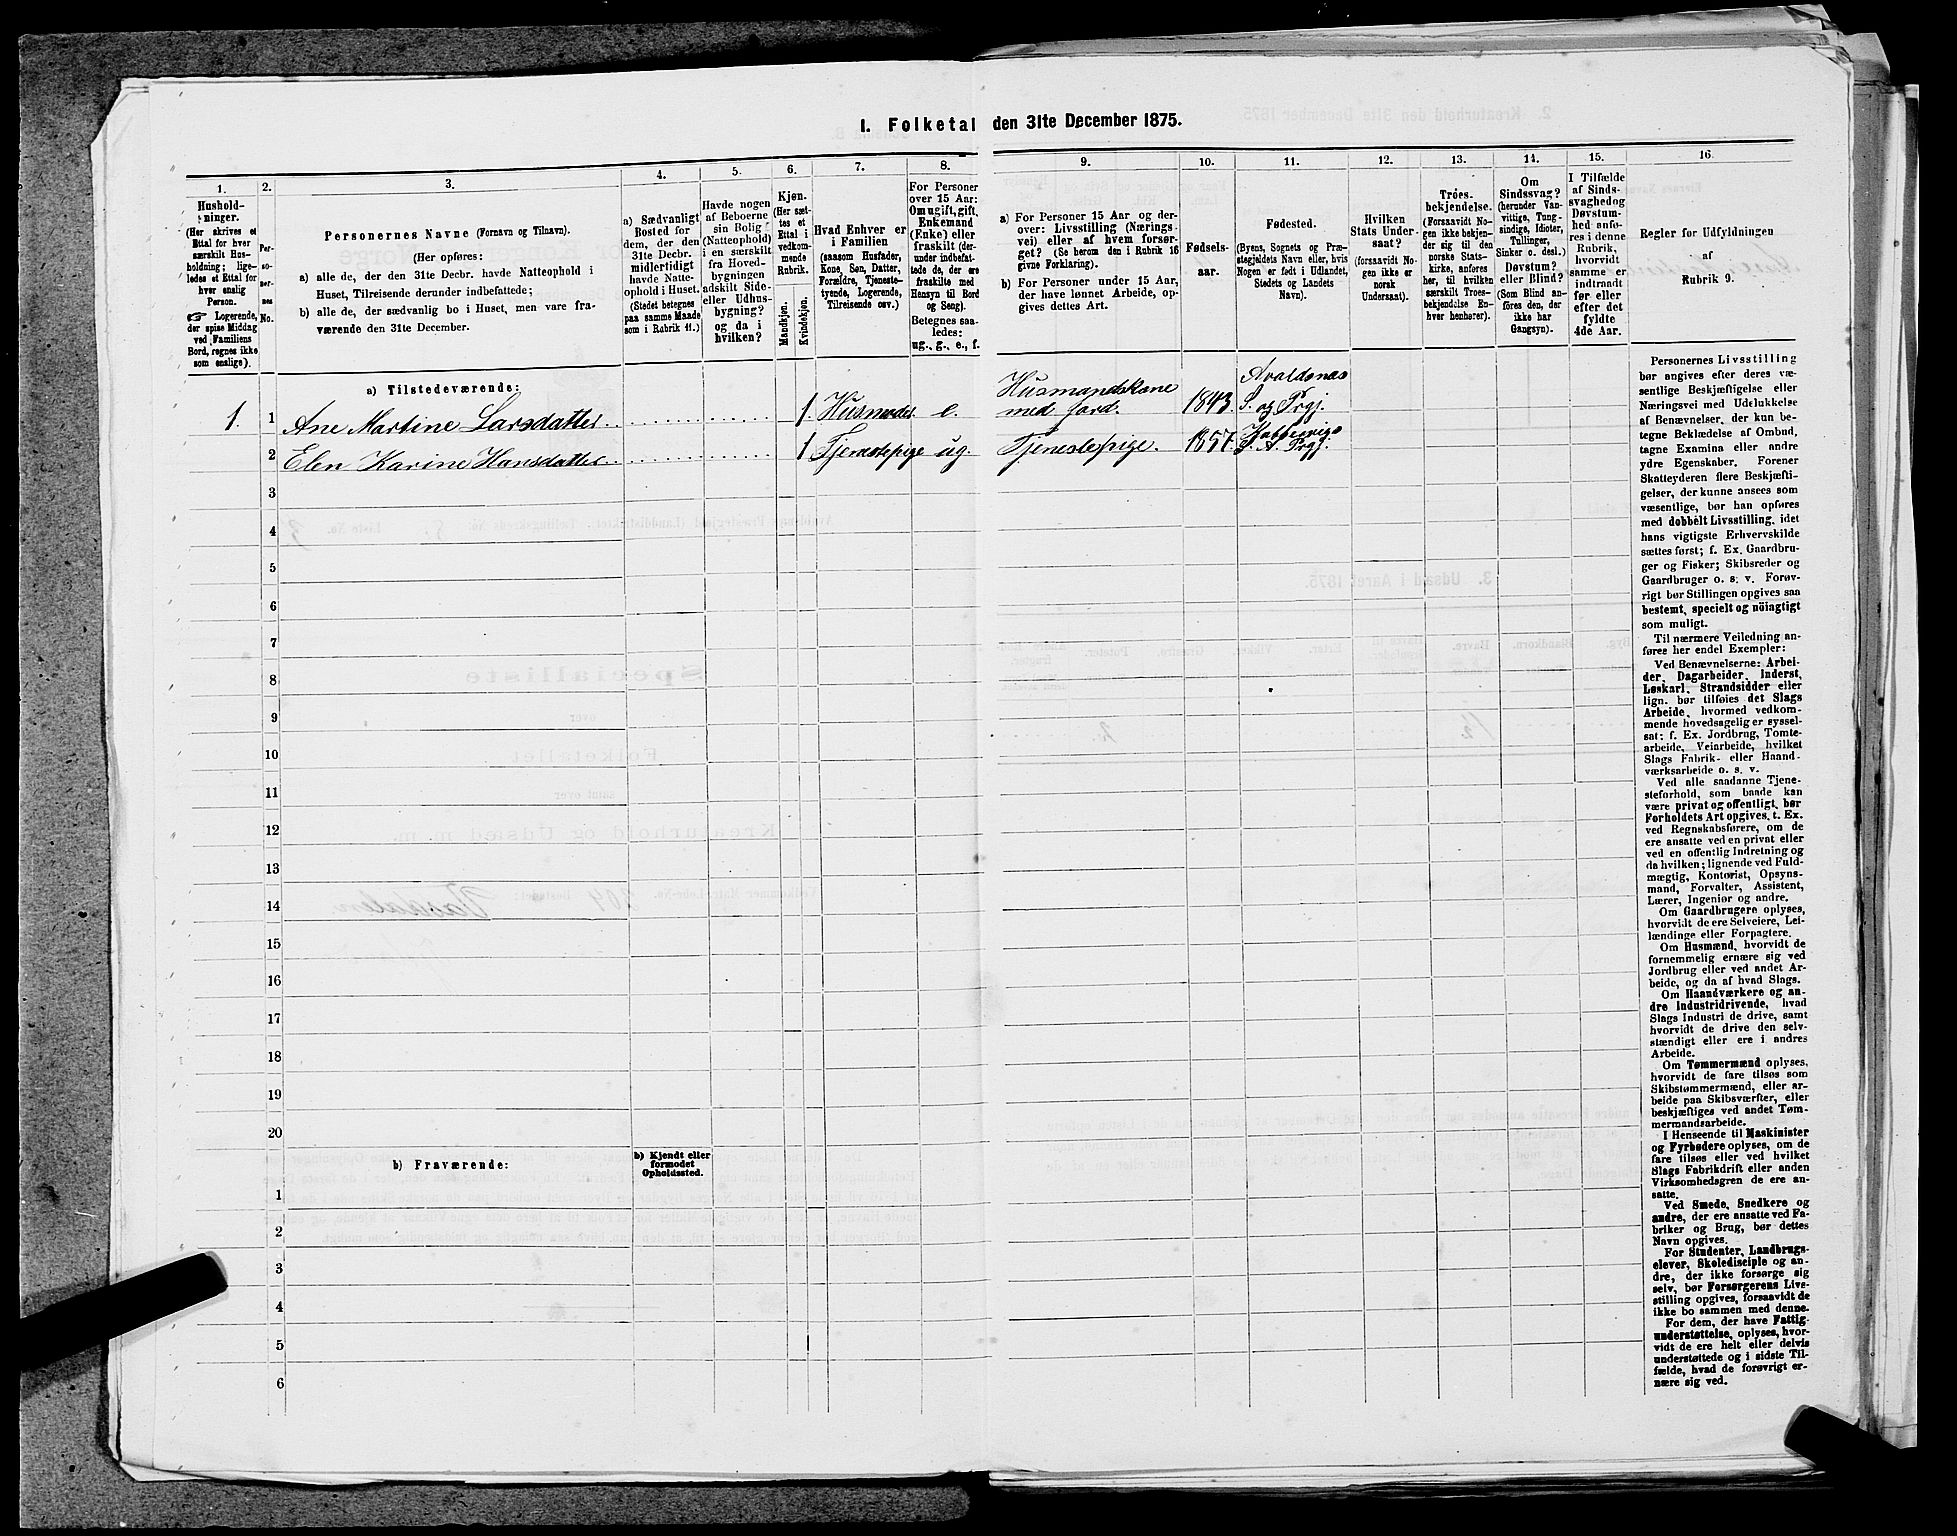 I. Folketal den 31te December 1875.
1.
Hushold-
ninger.
(Her skrives et
Ettal for hver
særskilt Hus-
holdning; lige-
ledes et Ettal for
hver enslig
Person.
☞ Logerende,
der spise Middag
ved Familiens
Bord, regnes ikke
som enslige).
2.
Per-
so-
ner-
nes
No.
3.
Personernes Navne (Fornavn og Tilnavn).
(Her opføres:
a) alle de, der den 31te Decbr. havde Natteophold i
Huset, Tilreisende derunder indbefattede;
b) alle de, der sædvanlig bo i Huset, men vare fra-
værende den 31te December.
4.
a) Sædvanligt
Bosted for
dem, der den
31te Decbr.
midlertidigt
havde Natte-
ophold i Huset.
(Stedet betegnes
paa samme Maade
som i Rubrik 11.)
5.
Havde nogen
af Beboerne
sin Bolig
(Natteophold)
i en særskilt
fra Hoved-
bygningen
adskilt Side-
eller Udhus-
bygning?
og da i
hvilken?
6.
Kjøn.
(Her sæt-
tes et
Ettal i
vedkom-
mende
Rubrik.
Mandkjøn.
Kvindekjøn.
7.
Hvad Enhver er
i Familien
(saasom Husfader,
Kone, Søn, Datter,
Forældre, Tjeneste-
tyende, Logerende,
Tilreisende osv.)
8.
For Personer
over 15 Aar:
Om ugift, gift,
Enkemand
(Enke) eller
fraskilt (der-
under indbefat-
tede de, der ere
fraskilte med
Hensyn til Bord
og Seng).
Betegnes saa-
ledes:
ug., g., e., f.
9.
a) For Personer 15 Aar og der-
over: Livsstilling (Nærings-
vei) eller af hvem forsør-
get? (Se herom den i Rubrik 16
givne Forklaring).
b) For Personer under 15 Aar,
der have lønnet Arbeide, op-
gives dettes Art.
10.
Fødsels-
aar.
11.
Fødested.
(Byens, Sognets og Præ-
stegjeldets Navn eller, hvis
Nogen er født i Udlandet,
Stedets og Landets
Navn).
12.
Hvilken
Stats Under-
saat?
(forsaavidt No-
gen ikke er
norsk
Undersaat).
13.
Troes-
bekjendelse.
(Forsaavidt No-
gen ikke bekjen-
der sig til den
norske Stats-
kirke, anføres
her, til hvilken
særskilt Troes-
bekjendelse En-
hver henhører).
14.
Om
Sindssvag?
(herunder Van-
vittige, Tung-
sindige, Idioter,
Tullinger,
Sinker o. desl.)
Døvstum?
eller Blind?
(Som Blind an-
føres den, der
ikke har
Gangsyn).
15.
I Tilfælde
af Sinds-
svaghed og
Døvstum-
hed anfø-
res i denne
Rubrik,
hvorvidt
samme er
indtraadt
før eller
efter det
fyldte
4de Aar.
16
Regler for Udfyldningen
af
Rubrik 9.
a) Tilstedeværende:
1. 1 Ane Martine Larsdatter 1. Husmoder e. Husmandskone med Jord. 1843. Avaldsnæs S. og Prgj.
2 Elen Karine Hansdatter 1 Tjenestepige ug. Tjenestepige. 1857. S. Prgj.
3
4
5
6
7
8
9
10
11
12
13
14
15
16
17
18
19
20
b) Fraværende:
b) Kjendt eller
formodet
Opholdssted.
1
2
3
4
5
6
Personernes Livsstilling
bør angives efter deres væ-
sentlige Beskjæftigelse eller
Næringsvei med Udelukkelse
af Benævnelser, der kun be-
tegne Beklædelse af Ombud,
tagne Examina eller andre
ydre Egenskaber. Forener
Skatteyderen flere Beskjæfti-
gelser, der kunne ansees som
væsentlige, bør han opføres
med dobbelt Livsstilling, idet
hans vigtigste Erhvervskilde
sættes først; f. Ex. Gaardbru-
ger og Fisker; Skibsreder og
Gaardbruger o. s. v. Forøv-
rigt bør Stillingen opgives saa
bestemt, specielt og nöiagtigt
som muligt.
Til nærmere Veiledning an-
føres her endel Exempler:
Ved Benævnelserne: Arbei-
der, Dagarbeider, Inderst,
Løskarl, Strandsidder eller
lign. bør tilføies det Slags
Arbeide, hvormed vedkom-
mende hovedsagelig er syssel-
sat; f. Ex. Jordbrug, Tomte-
arbeide, Veiarbeide, hvilket
Slags Fabrik- eller Haand-
værksarbeide o. s. v.
Ved alle saadanne Tjene-
steforhold, som baade kan
være privat og offentligt, bør
Forholdets Art opgives, t. Ex.
ved Regnskabsførere, om de
ere ansatte ved en privat eller
ved en offentlig Indretning og
da hvilken; lignende ved Fuld-
mægtig, Kontorist, Opsyns-
mand, Forvalter, Assistent,
Lærer, Ingeniør og andre.
Om Gaardbrugere oplyses,
hvorvidt de ere Selveiere, Lei-
lændinge eller Forpagtere.
Om Husmænd, hvorvidt de
fornemmelig ernære sig ved
Jordbrug eller ved andet Ar-
beide, og da af hvad Slags.
Om Haandværkere og an-
dre Industridrivende, hvad
Slags Industri de drive, samt
hvorvidt de drive den selv-
stændigt eller ere i andres
Arbeide.
Om Tømmermænd oplyses,
hvorvidt de fare tilsøs som
Skibstømmermænd, eller ar-
beide paa Skibsværfter, eller
beskjæftiges ved andet Tøm-
mermandsarbeide.
I Henseende til Maskinister
og Fyrbødere oplyses, om de
fare tilsøs eller ved hvilket
Slags Fabrikdrift eller anden
Virksomhedsgren de ere an-
satte.
Ved Smede, Snedkere og
andre, der ere ansatte ved Fa-
briker og Brug, bør dettes
Navn opgives.
For Studenter, Landbrugs-
elever, Skoledisciple og an-
dre, der ikke forsørge sig
selv, bør Forsørgerens Livs-
stilling opgives, forsaavidt de
ikke bo sammen med denne.
For dem, der have Fattig-
understøttelse, oplyses, hvor-
vidt de ere helt eller delvis
understøttede og i sidste Til-
fælde, hvad de forøvrigt er-
nære sig ved.